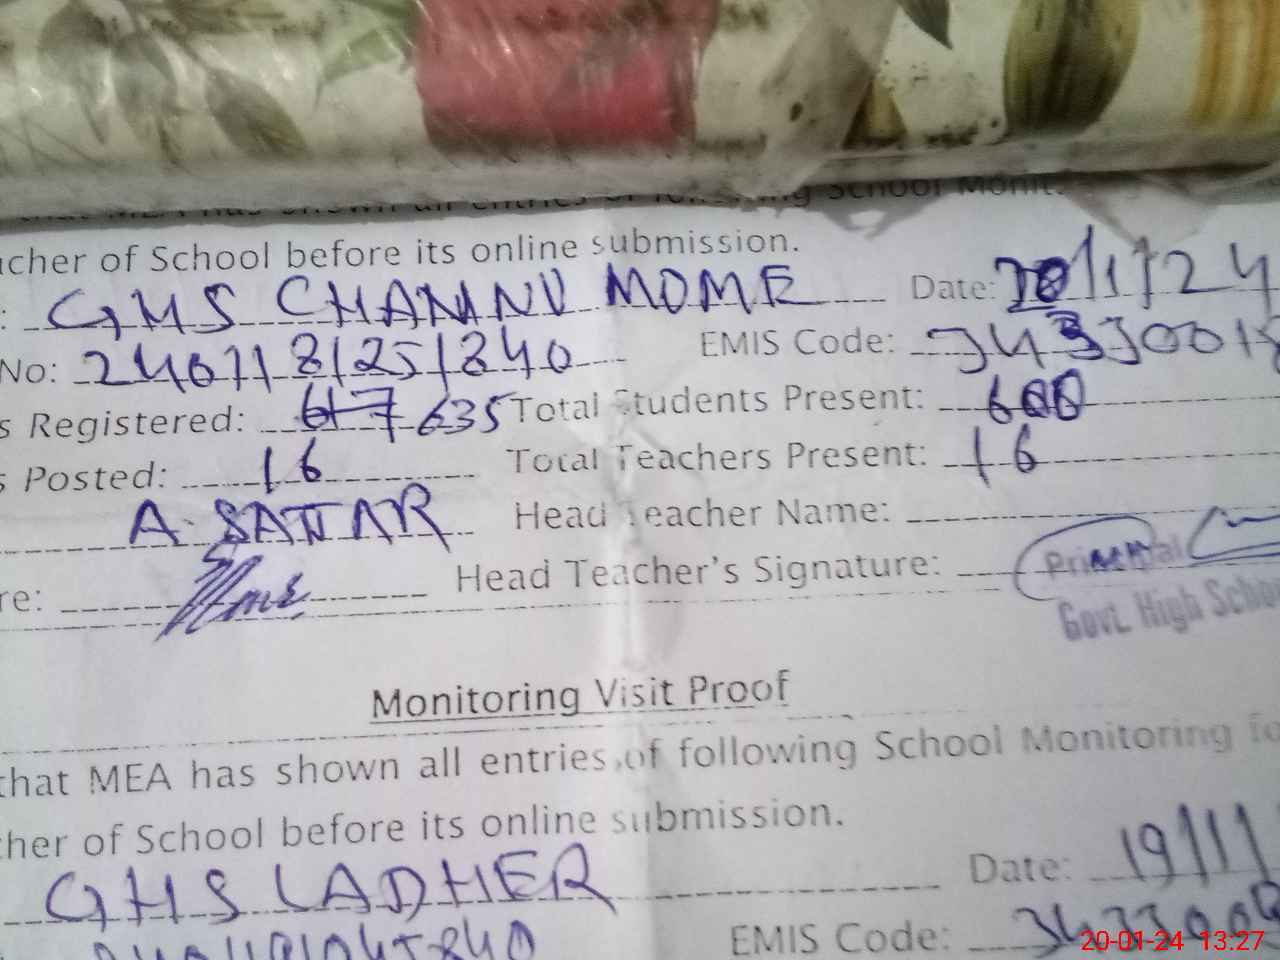 cher of School before its online submission.
: GHS CHANNU MOME Date: 20/1/24
No: 2407118/25/840 EMIS Code: 3433001
s Registered: 617 635 Total Students Present: 600
s Posted: 16 Total Teachers Present: 16
A. SATTAR Head Teacher Name:
re: Head Teacher's Signature: Principal
Govt. High School
Monitoring Visit Proof
that MEA has shown all entries of following School Monitoring
cher of School before its online submission.
GHS LADHER Date: 19/1/
EMIS Code:
20-01-24 13:27